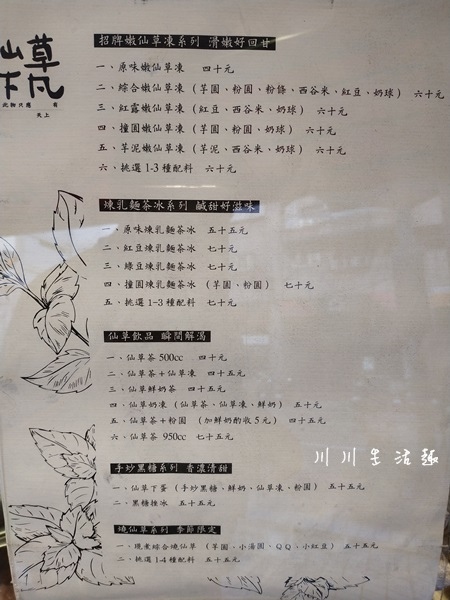 仙草
下凡
此物只應 有
天上
招牌嫩仙草凍系列 滑嫩好回甘
一、原味嫩仙草凍 四十元
二、綜合嫩仙草凍（芋圓、粉圓、粉條、西谷米、紅豆、奶球） 六十元
三、紅露嫩仙草凍（紅豆、西谷米、奶球） 六十元
四、撞圓嫩仙草凍（芋圓、粉圓、奶球） 六十元
五、芋泥嫩仙草凍（芋泥、西谷米、奶球） 六十元
六、挑選1-3種配料 六十元
煉乳麵茶冰系列 鹹甜好滋味
一、原味煉乳麵茶冰 五十五元
二、紅豆煉乳麵茶冰 七十元
三、綠豆煉乳麵茶冰 七十元
四、撞圓煉乳麵茶冰（芋圓、粉圓） 七十元
五、挑選1-3種配料 七十元
仙草飲品 瞬間解渴
一、仙草茶500cc 四十元
二、仙草茶+仙草凍 四十五元
三、仙草鮮奶茶 四十五元
四、仙草奶凍（仙草茶、仙草凍、鮮奶） 五十元
五、仙草茶+粉圓（加鮮奶酌收5元） 四十五元
六、仙草茶 950cc 七十五元
手炒黑糖系列 香濃清甜
一、仙草下蛋（手炒黑糖、鮮奶、仙草凍、粉圓） 五十五元
二、黑糖挫冰 五十元
燒仙草系列 季節限定
一、現煮綜合燒仙草（芋圓、小湯圓、QQ、小紅豆） 五十五元
二、挑選1-4種配料 五十五元
川川生活趣